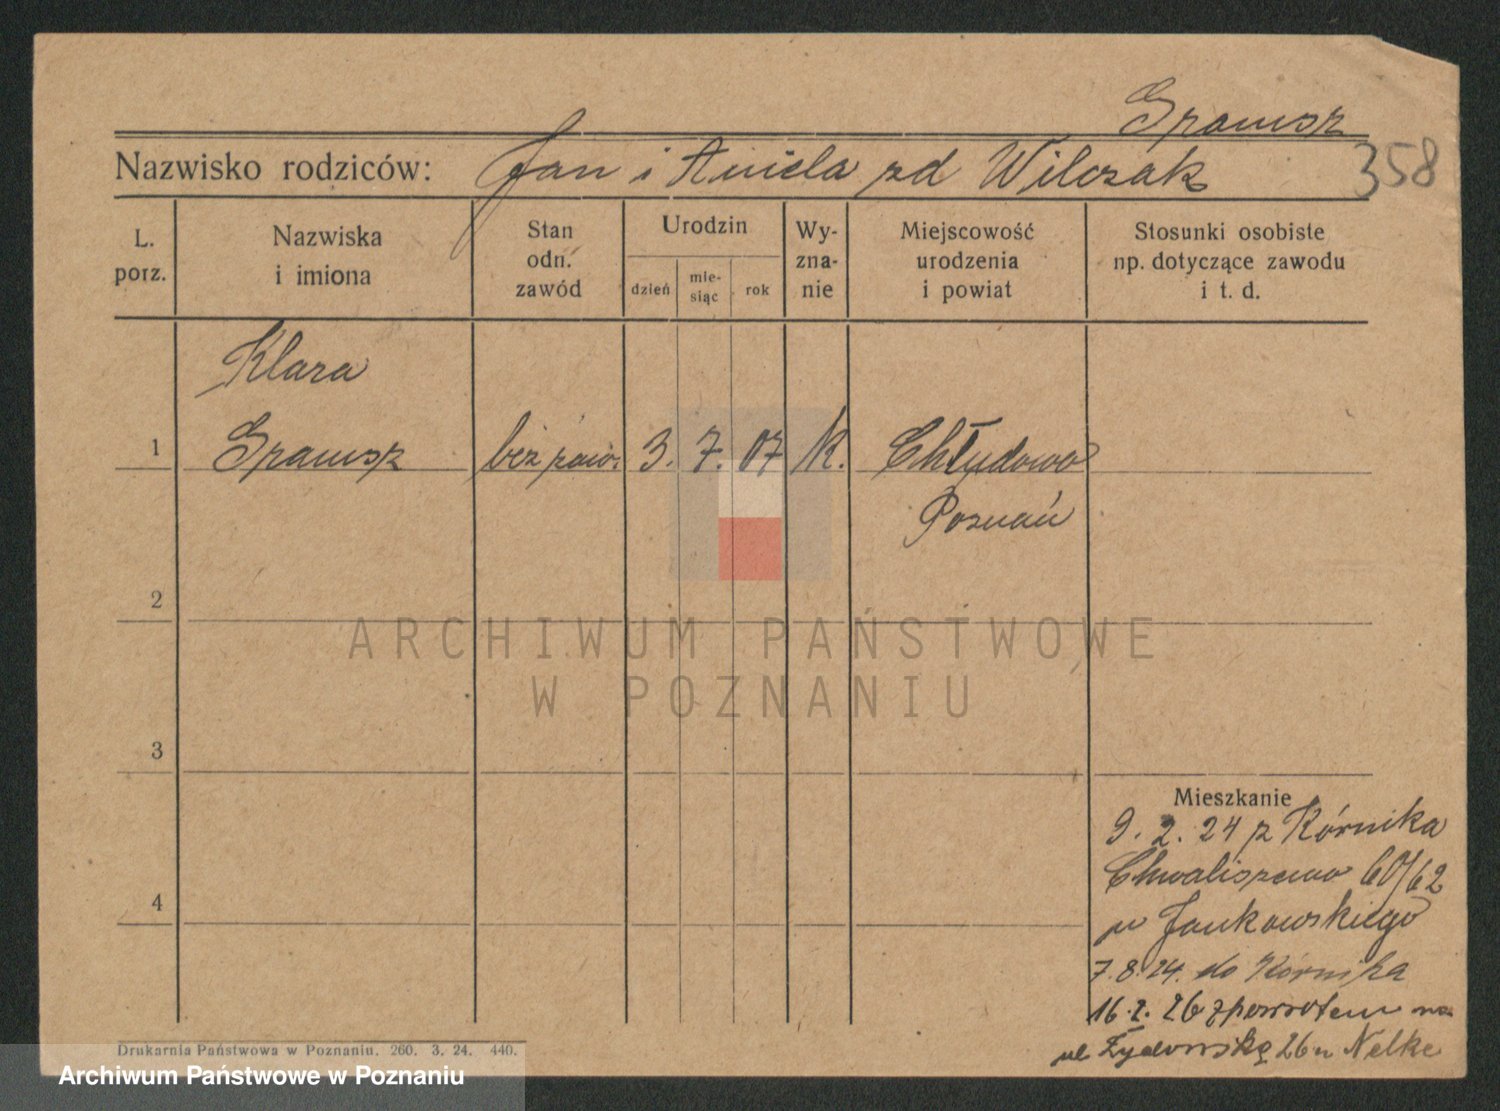 Nazwisko rodziców: Jan i Aniela zd Wilczak
358
L. porz.
Nazwiska i imiona
Stan odn. zawód
Urodzin
dzień
mie-
siąc
rok
Wy-
zna-
nie
Miejscowość
urodzenia
i powiat
Stosunki osobiste
np. dotyczące zawodu
i t. d.
Klara
1
bez zaw. 3. 7. 07 k. Chłudowo
Poznań
2
ARCHIWUM PAŃSTWOWE
W POZNANIU
3
4
Mieszkanie
9. 2. 24 z Kórnika
Chwaliszewo 60/62
u Jankowskiego
7. 8. 24. do Kórnika
26 zpowrotem na
ul Żydowską 26 u Nelke
Drukarnia Państwowa w Poznaniu. 260. 3. 24. 440.
Archiwum Państwowe w Poznaniu